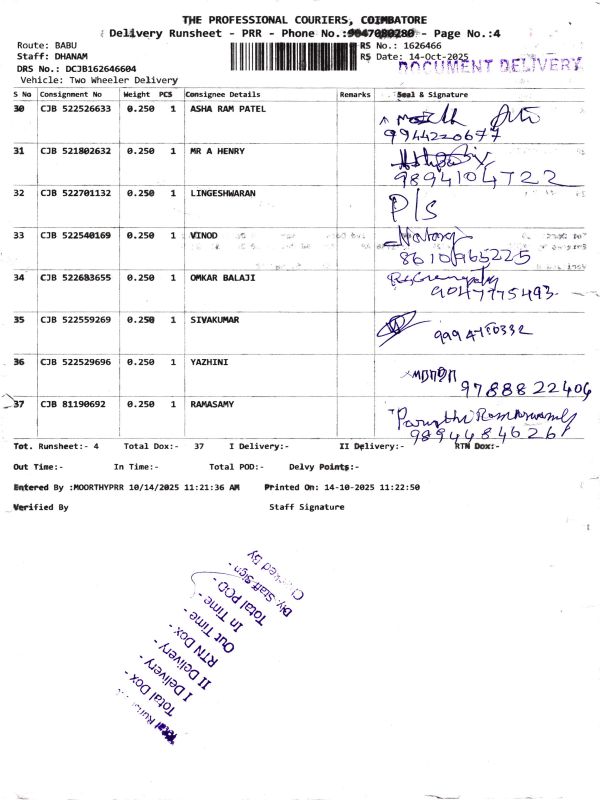 THE PROFESSIONAL COURIERS, COIMBATORE
Delivery Runsheet - PRR - Phone No.:9047080280 - Page No.:4
Route: BABU RS No.: 1626466
Staff: DHANAM RS Date: 14-Oct-2025
DRS No.: DCJB162646604 DOCUMENT DELIVERY
Vehicle: Two Wheeler Delivery
S No Consignment No Weight PCS Consignee Details Remarks Seal & Signature
30 CJB 522526633 0.250 1 ASHA RAM PATEL
9944220677
31 CJB 521802632 0.250 1 MR A HENRY
9894104722
32 CJB 522701132 0.250 1 LINGESHWARAN P/S
33 CJB 522540169 0.250 1 VINOD
8610965225
34 CJB 522683655 0.250 1 OMKAR BALAJI
9047775493
35 CJB 522559269 0.250 1 SIVAKUMAR
36 CJB 522529696 0.250 1 YAZHINI
9788822404
37 CJB 81190692 0.250 1 RAMASAMY
9894484626
Tot. Runsheet:- 4 Total Dox:- 37 I Delivery:- II Delivery:- RTN Dox:-
Out Time:- In Time:- Total POD:- Delvy Points:-
Entered By :MOORTHYPRR 10/14/2025 11:21:36 AM Printed On: 14-10-2025 11:22:50
Verified By Staff Signature
Total Dox -
I Delivery -
II Delivery -
RTN Dox -
Out Time -
In Time -
Total POD -
Dly. Staff Sign -